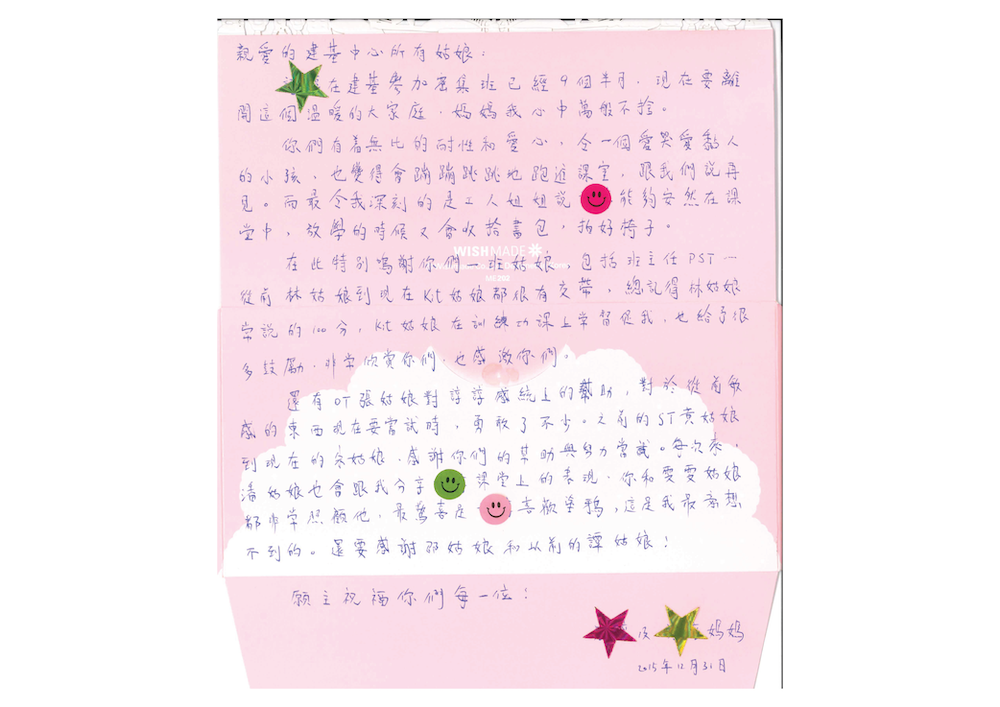 親愛的建基中心所有姑娘：
在建基參加密集班已經9個半月，現在要離
開這個溫暖的大家庭，媽媽我心中萬般不捨。
你們有着無比的耐性和愛心，令一個愛哭愛黏人
的小孩，也變得會蹦蹦跳跳地跑進課室，跟我們說再
見。而最令我深刻的是工人姐姐說 能夠安然在課
堂中，放學的時候又會收拾書包，拍好椅子。
WISHMADE
在此特別鳴謝你們一班姑娘，包括班主任PST一
從前林姑娘到現在Kit姑娘都很有交帶，總記得林姑娘
常說的100分，Kit姑娘在訓練功課上常督促我，也給予很
多鼓勵，非常欣賞你們，也感激你們。
還有OT張姑娘對諄諄感統上的幫助，對於從前敏
感的東西現在要嘗試時，勇敢了不少。之前的ST黃姑娘
到現在的余姑娘，感謝你們的幫助與努力嘗試。每次來，
潘姑娘也會跟我分享 課堂上的表現，你和雯雯姑娘
都非常照顧他，最驚喜是 喜歡塗鴉，這是我最意想
不到的。還要感謝 姑娘和以前的譚姑娘！
願主祝福你們每一位！
及 媽媽
2015年12月31日